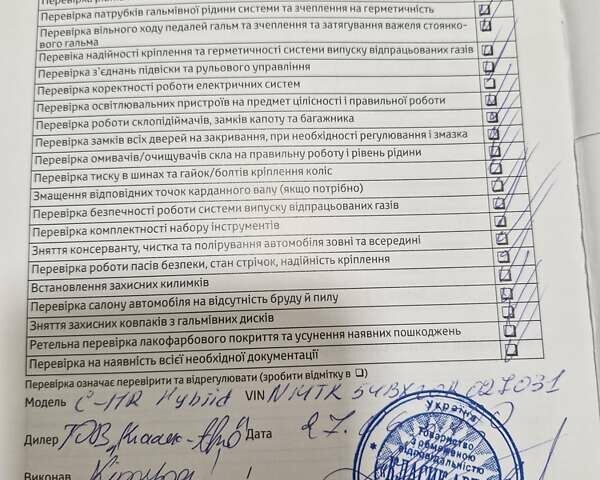 Перевірка патрубків гальмівної рідини системи та зчеплення на герметичність
Перевірка вільного ходу педалей гальм та зчеплення та затягування важеля стоянко-
вого гальма
Перевіка надійності кріплення та герметичності системи випуску відпрацьованих газів
Перевірка з'єднань підвіски та рульового управління
Перевірка коректності роботи електричних систем
Перевірка освітлювальних пристроїв на предмет цілісності і правильної роботи
Перевірка роботи склопідіймачів, замків капоту та багажника
Перевірка замків всіх дверей на закривання, при необхідності регулювання і змазка
Перевірка омивачів/очищувачів скла на правильну роботу і рівень рідини
Перевірка тиску в шинах та гайок/болтів кріплення коліс
Змащення відповідних точок карданного валу (якщо потрібно)
Перевірка безпечності роботи системи випуску відпрацьованих газів
Перевірка комплектності набору інструментів
Зняття консерванту, чистка та полірування автомобіля зовні та всередині
Перевірка роботи пасів безпеки, стан стрічок, надійність кріплення
Встановлення захисних килимків
Перевірка салону автомобіля на відсутність бруду й пилу
Зняття захисних ковпаків з гальмівних дисків
Ретельна перевірка лакофарбового покриття та усунення наявних пошкоджень
Перевірка на наявність всієї необхідної документації
Перевірка означає перевірити та відрегулювати (зробити відмітку в ❑)
Модель C-HR Hybrid VIN
Дилер ТОВ Дата 27.
Виконав
Україна
Товариство
з обмеженою
відповідальністю